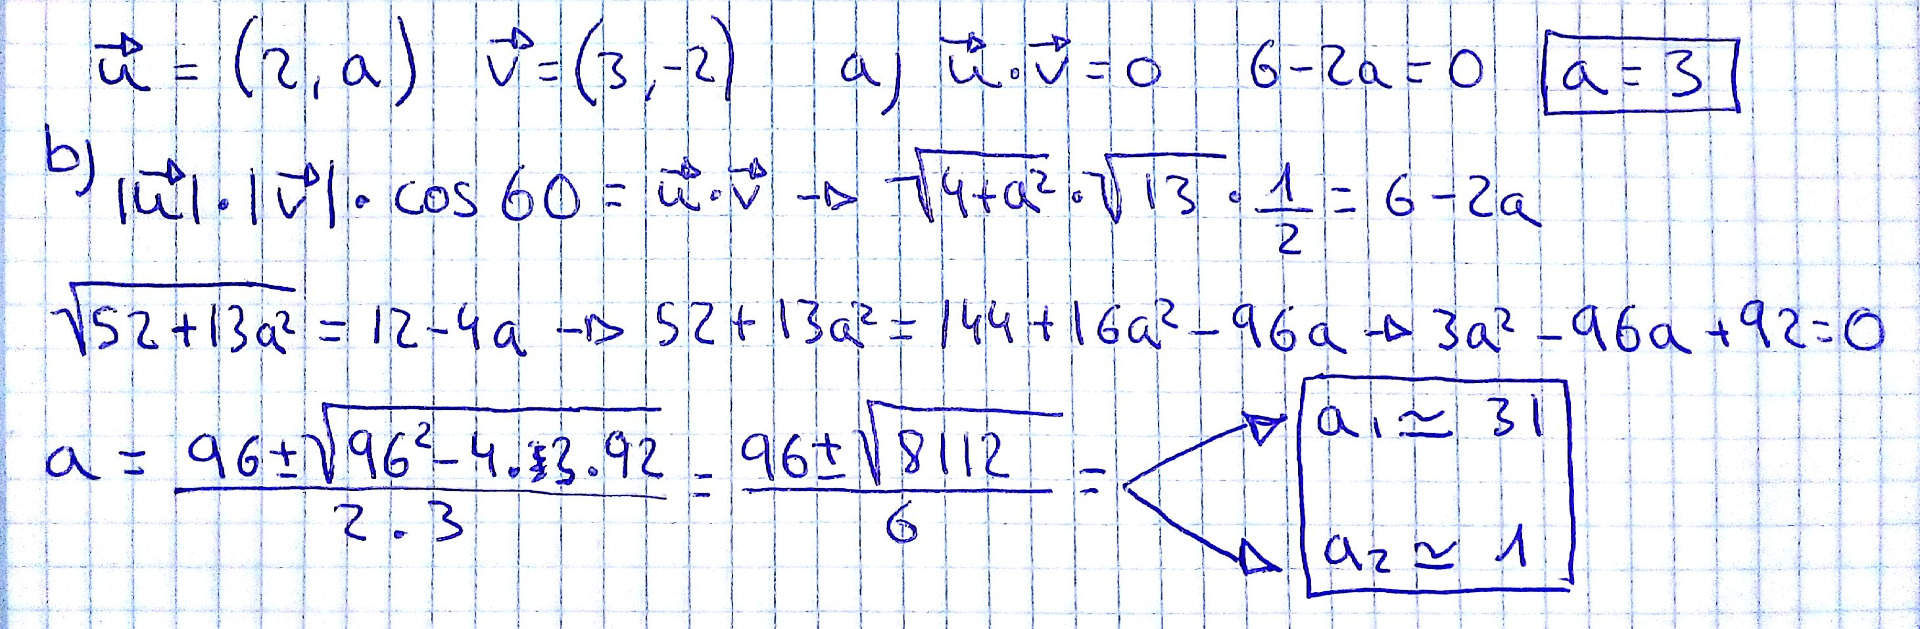 u⃗ = (2, a) v⃗ = (3, -2) a) u⃗ · v⃗ = 0 6 - 2a = 0 a = 3
b) |u⃗| · |v⃗| · cos 60 = u⃗ · v⃗ → √(4+a²) · √13 · 1/2 = 6 - 2a
√(52+13a²) = 12 - 4a → 52 + 13a² = 144 + 16a² - 96a → 3a² - 96a + 92 = 0
a = (96 ± √(96² - 4 · 3 · 92)) / (2 · 3) = (96 ± √8112) / 6 =
a₁ ≃ 31
a₂ ≃ 1